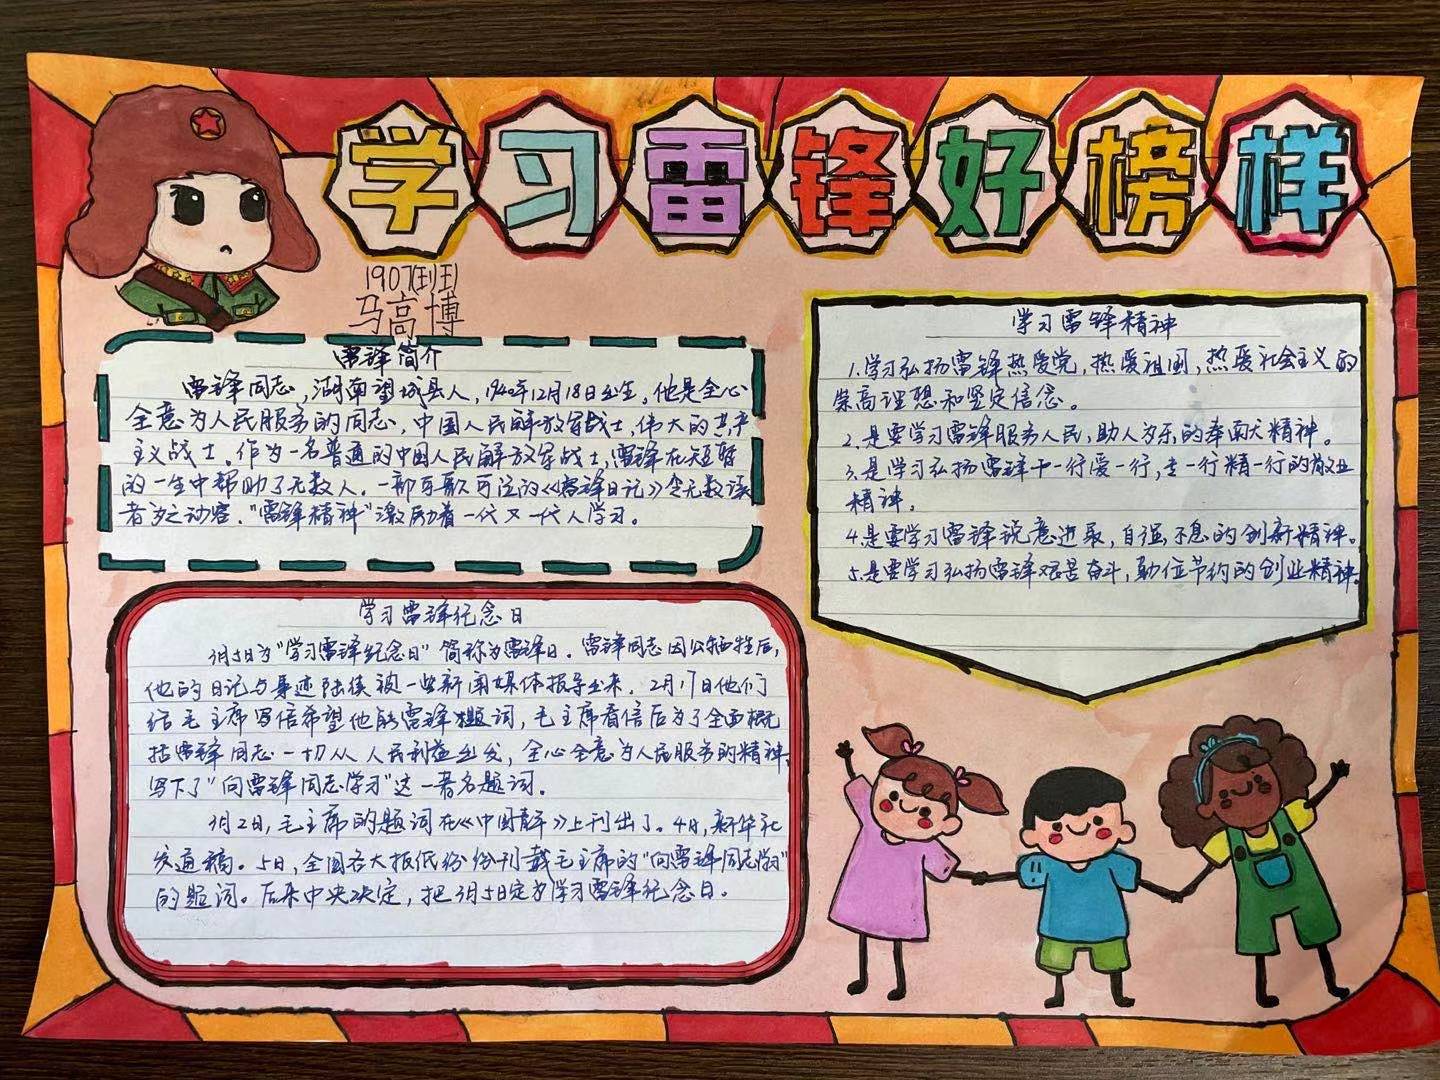 学习雷锋好榜样
1907班
马高博
雷锋简介
雷锋同志,湖南望城县人,1940年12月18日出生。他是全心
全意为人民服务的同志,中国人民解放军战士,伟大的共产
主义战士。作为一名普通的中国人民解放军战士,雷锋在短暂
的一生中帮助了无数人。一部可歌可泣的《雷锋日记》令无数读
者为之动容。"雷锋精神"激励着一代又一代人学习。
学习雷锋纪念日
3月5日为"学习雷锋纪念日"简称为雷锋日。雷锋同志因公牺牲后,
他的日记与事迹陆续被一些新闻媒体报导出来。2月17日他们
给毛主席写信希望他能雷锋题词,毛主席看信后为了全面概
括雷锋同志一切从人民利益出发,全心全意为人民服务的精神,
写下了"向雷锋同志学习"这一著名题词。
3月2日,毛主席的题词在《中国青年》上刊出了。4日,新华社
发通稿。5日,全国各大报纸份份刊载毛主席的"向雷锋同志学习"
的题词。后来中央决定,把3月5日定为学习雷锋纪念日。
学习雷锋精神
1.学习弘扬雷锋热爱党,热爱祖国,热爱社会主义的
崇高理想和坚定信念。
2.是要学习雷锋服务人民,助人为乐的奉献精神。
3.是学习弘扬雷锋干一行爱一行,专一行精一行的敬业
精神。
4.是要学习雷锋锐意进取,自强不息的创新精神。
5.是要学习弘扬雷锋艰苦奋斗,勤俭节约的创业精神。